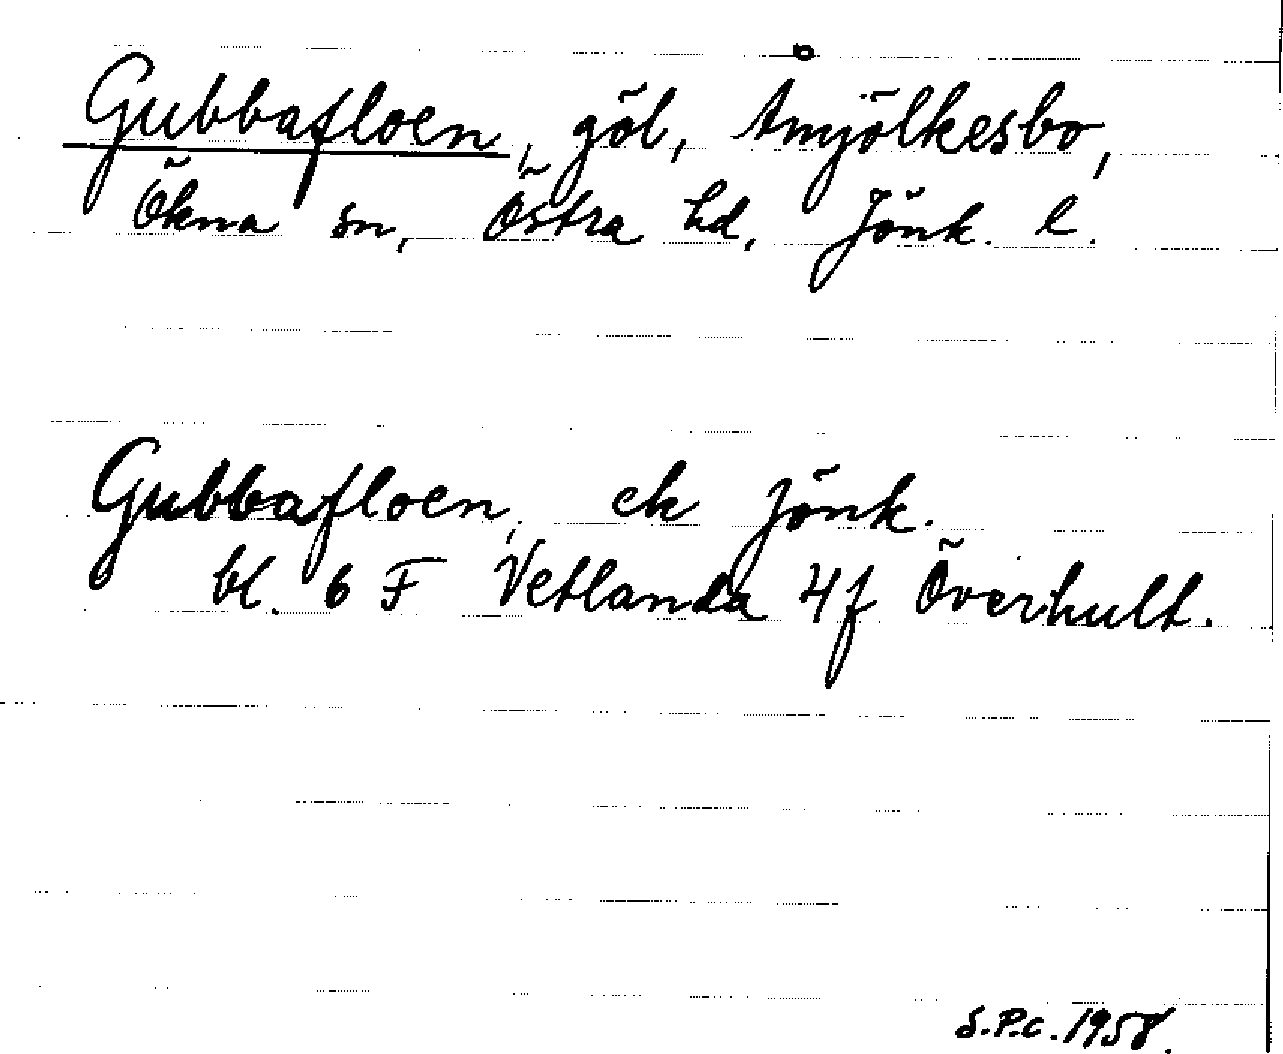 Gubbafloen, göl, Åmjölkesbo,
Ökna sn, Östra hd, Jönk. l.
Gubbafloen, ek Jönk.
bl. 6 F Vetlanda 4f Överhult.
S.P.C. 1958.